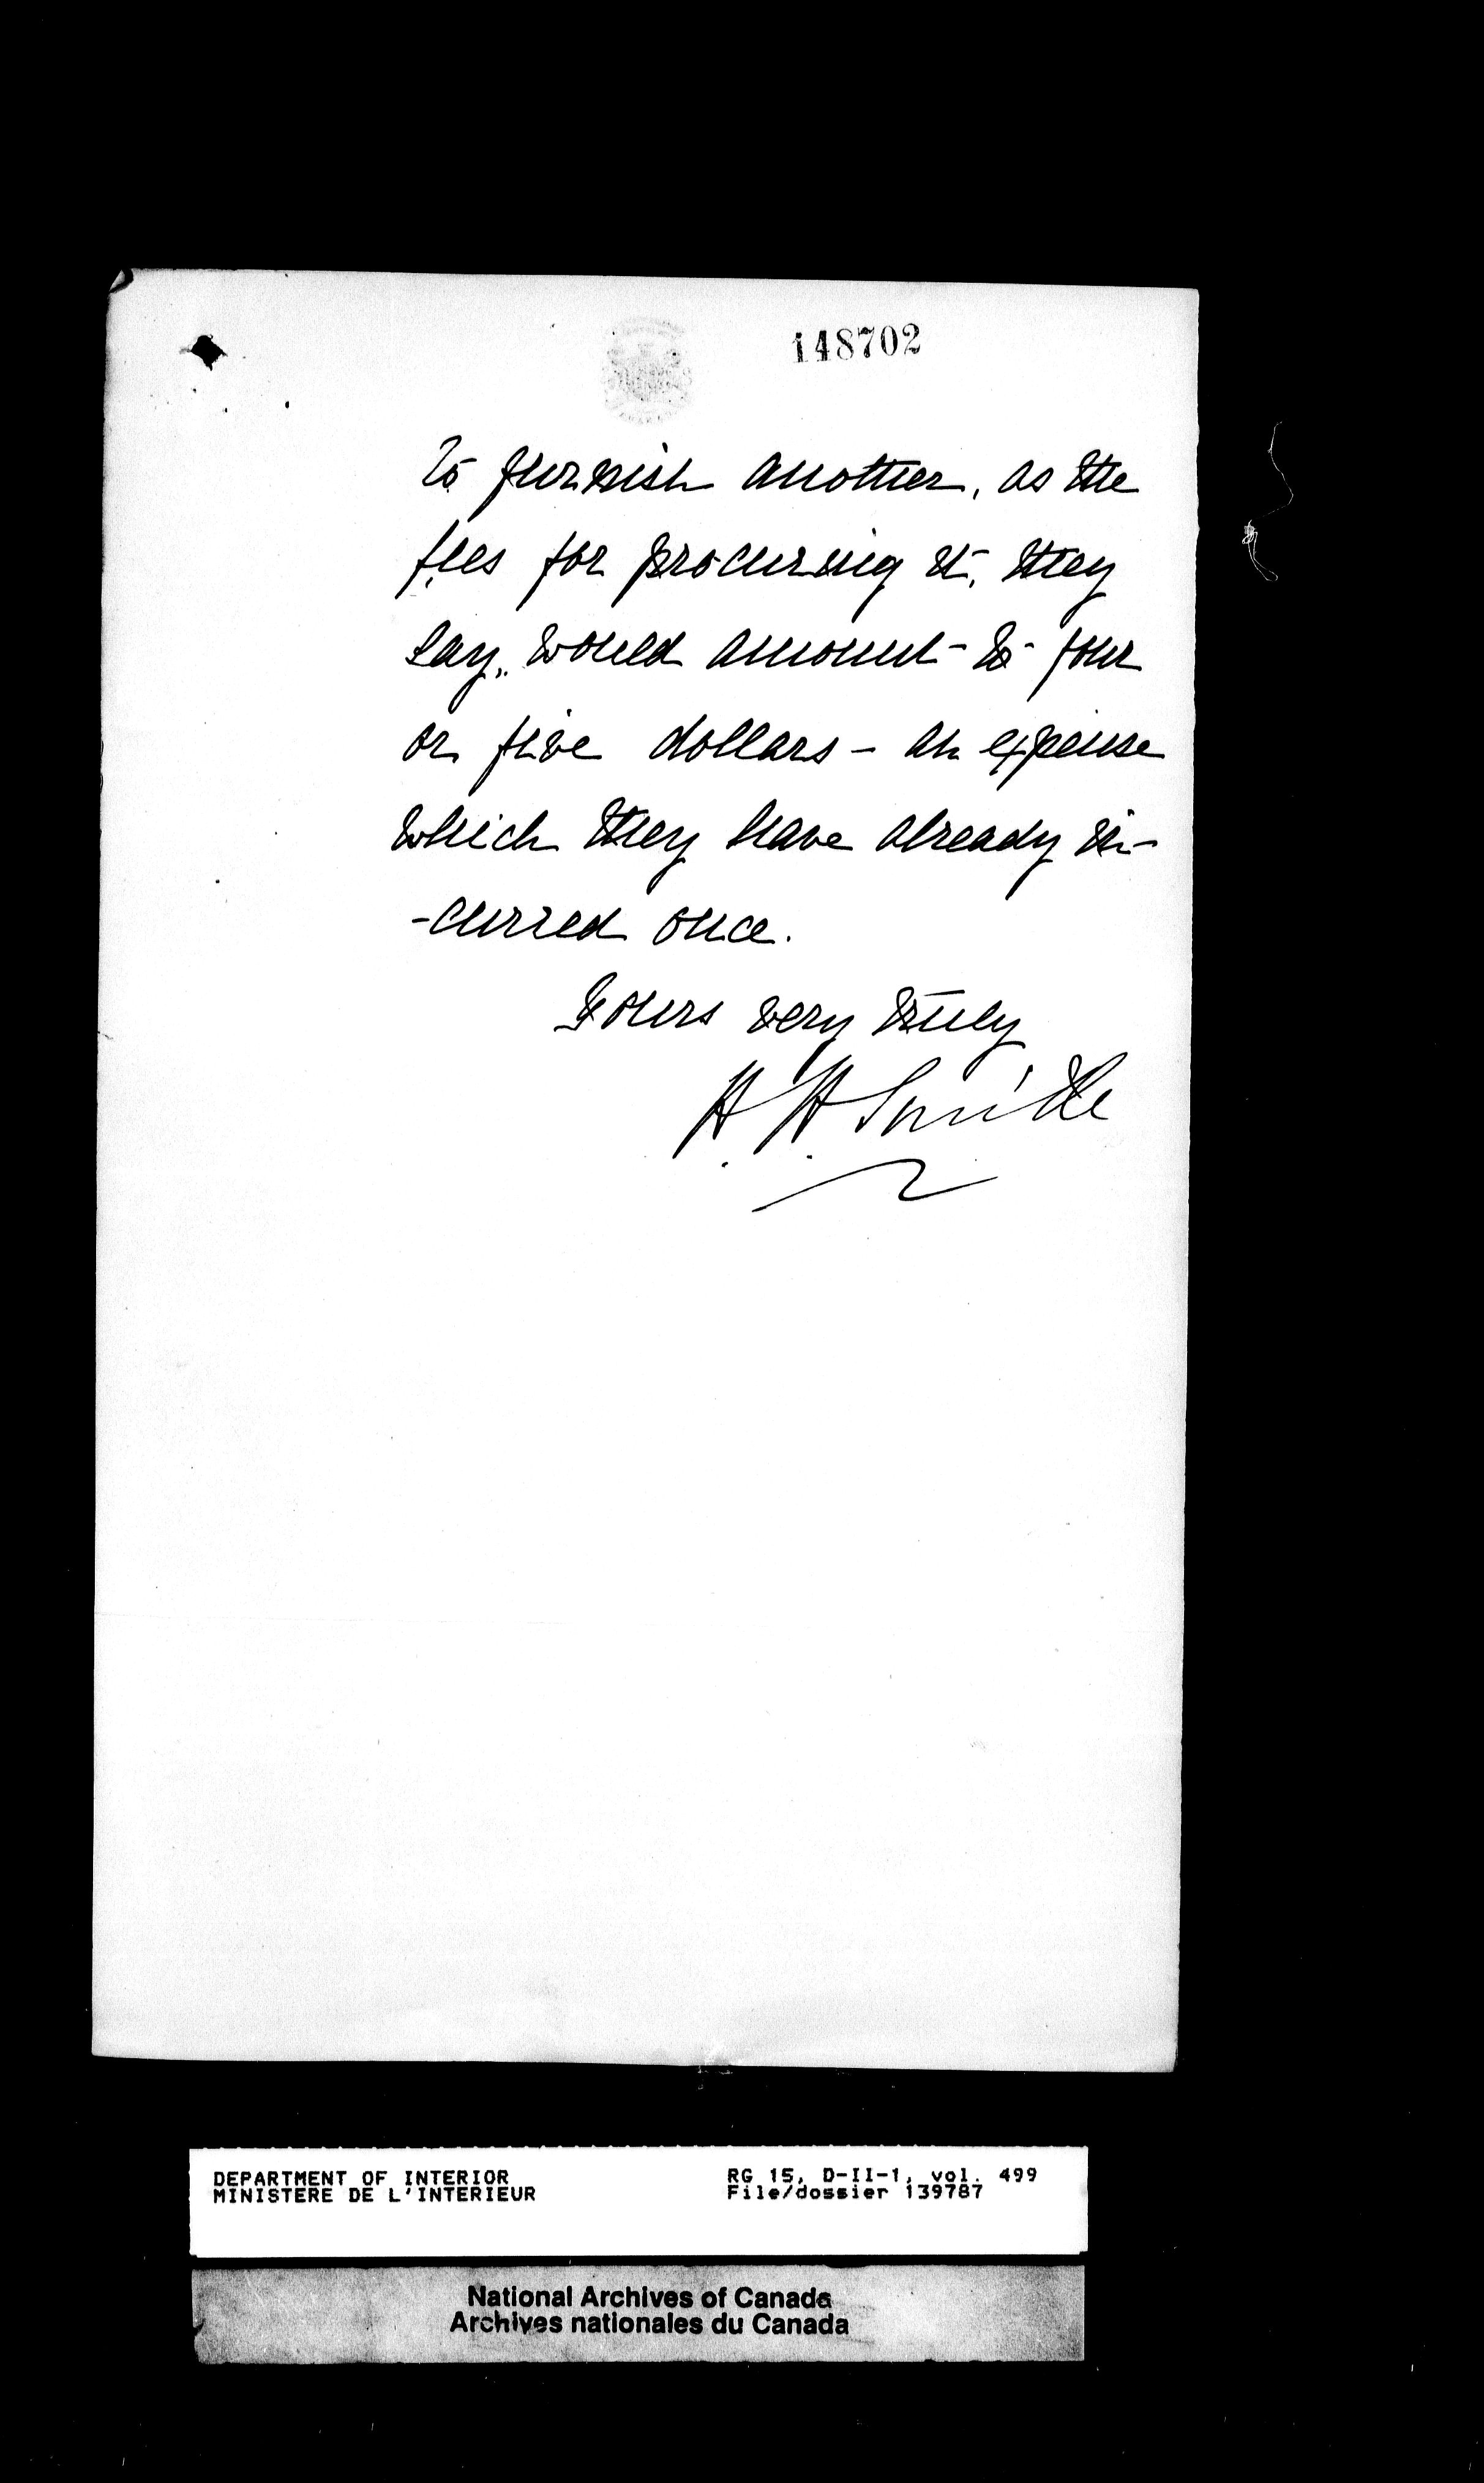 148702
to furnish another, as the
fees for procuring it, they
say, would amount to four
or five dollars - an expense
which they have already in-
-curred once.
Yours very truly
H. H. Smith
DEPARTMENT OF INTERIOR
MINISTERE DE L'INTERIEUR
RG 15, D-II-1, vol. 499
File/dossier 139787
National Archives of Canada
Archives nationales du Canada